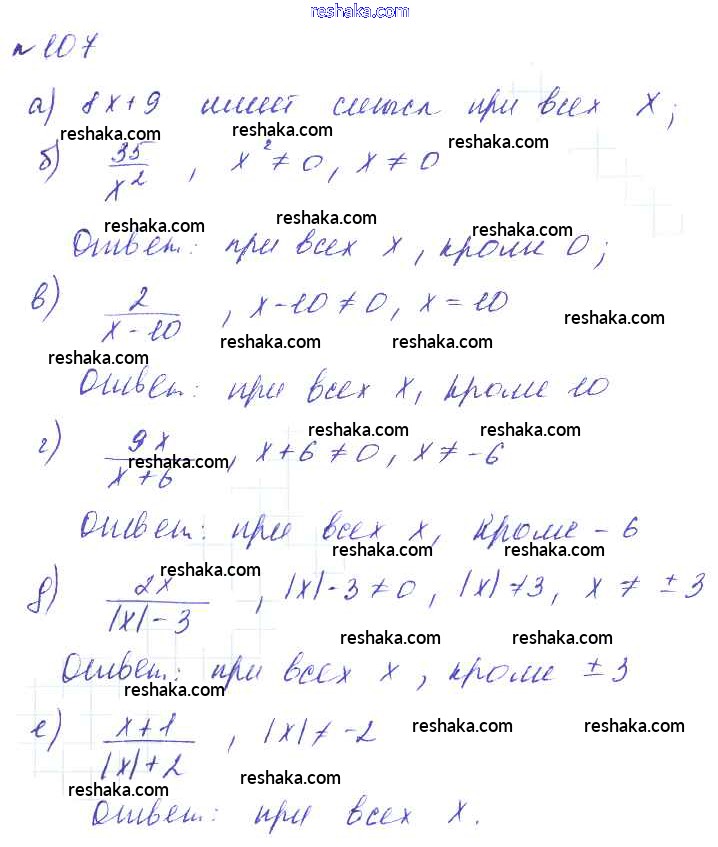 reshaka.com
№ 107
а) 8x+9 имеет смысл при всех x;
reshaka.com reshaka.com reshaka.com
б) 35/x², x² ≠ 0, x ≠ 0
reshaka.com reshaka.com reshaka.com
Ответ: при всех x, кроме 0;
в) 2/(x-10), x-10 ≠ 0, x = 10
reshaka.com
reshaka.com reshaka.com reshaka.com
Ответ: при всех x, кроме 10
reshaka.com reshaka.com
г) 9x/(x+6), x+6 ≠ 0, x ≠ -6
reshaka.com
Ответ: при всех x, кроме -6
reshaka.com reshaka.com reshaka.com
д) 2x/(|x|-3), |x|-3 ≠ 0, |x| ≠ 3, x ≠ ±3
reshaka.com reshaka.com reshaka.com
Ответ: при всех x, кроме ±3
reshaka.com
е) (x+1)/(|x|+2), |x| ≠ -2
reshaka.com reshaka.com
reshaka.com reshaka.com
Ответ: при всех x.